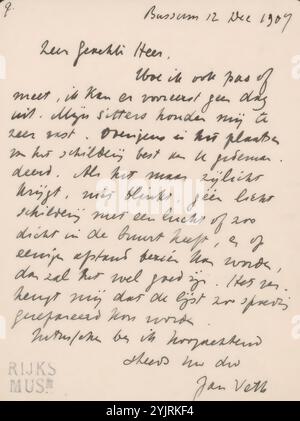 9.
Bussum 12 Dec 1907
Zeer Geachte Heer,
Hoe ik ook pas of
meet, ik kan er vooreerst geen dag
uit. Mijn sitters houden mij te
zeer vast. Overigens is het plaatsen
van het schilderij best aan U gedeman-
deerd. Als het maar zijlicht
krijgt, niet blinkt, geen licht
schilderij met een lucht of zoo
dicht in de buurt heeft, en op
eenigen afstand bezien kan worden,
dan zal het wel goed zijn. Het ver-
heugt mij dat de lijst zoo spoedig
gerepareerd kon worden.
Intusschen ben ik hoogachtend
steeds uw dw
Jan Veth
RIJKS
MUSM
alamy
Image ID: 2YJRKF4
www.alamy.com